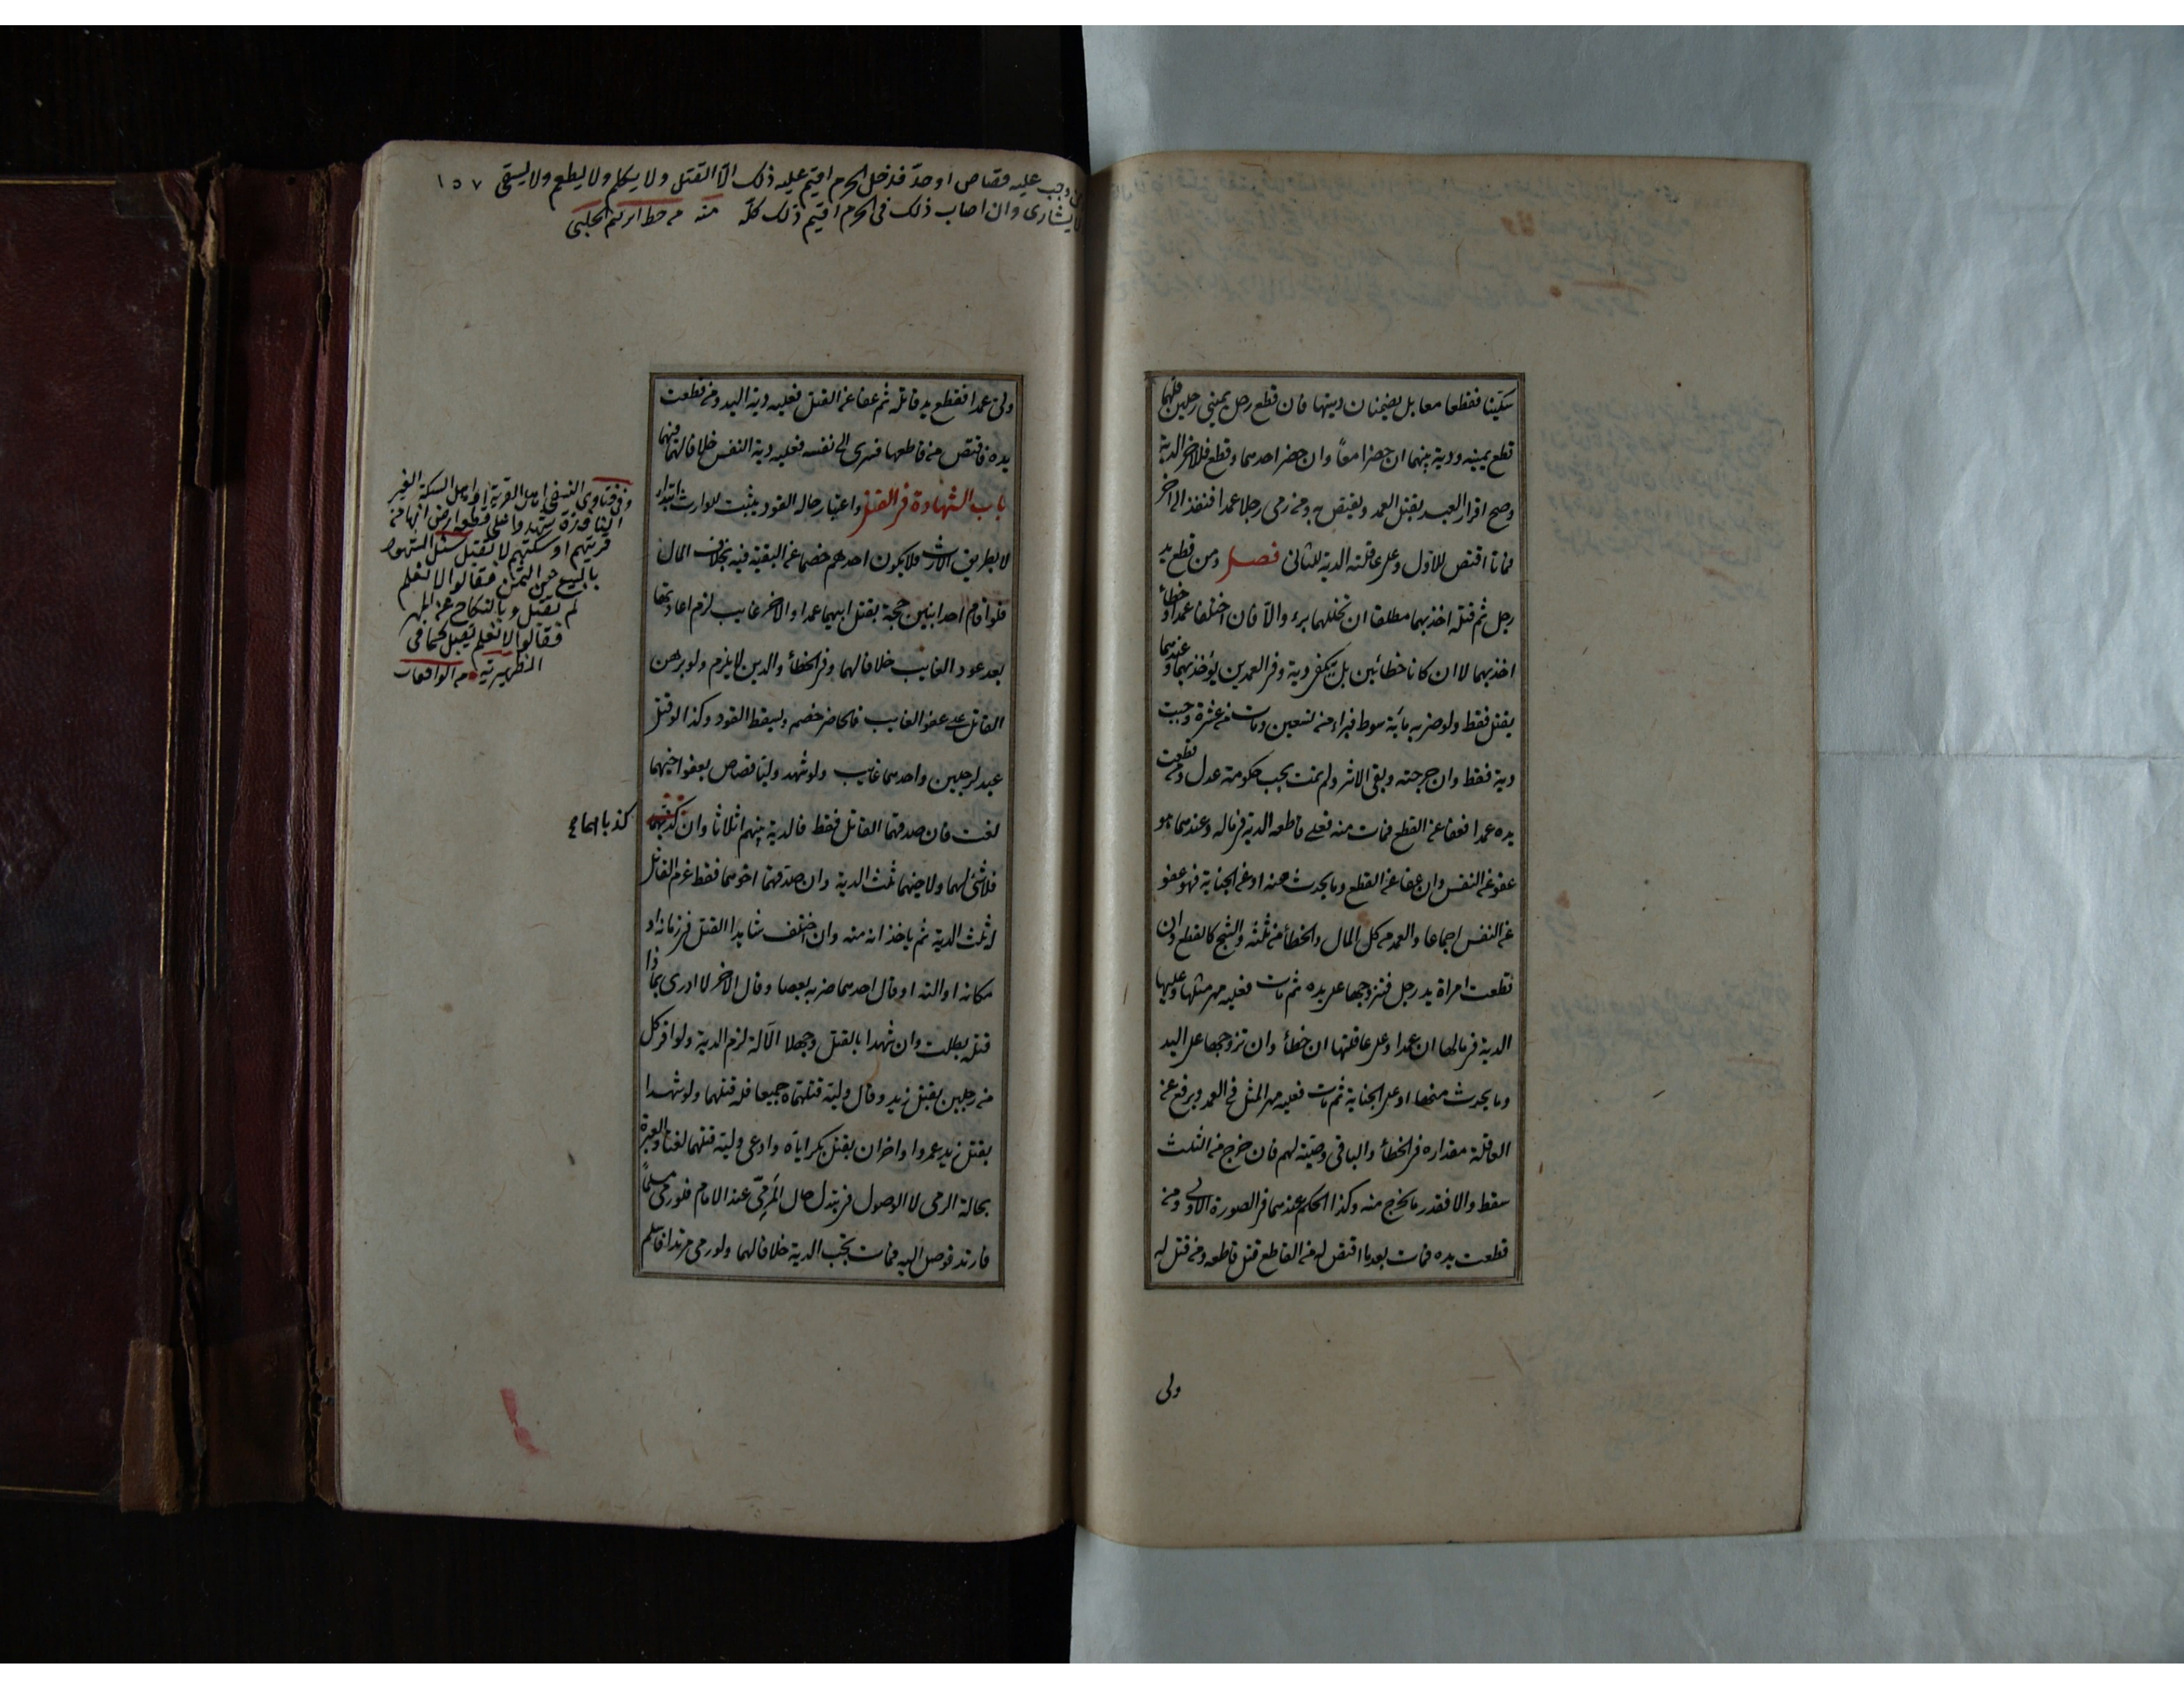 سكينا فقطعا معا بل يضمنان ديتها فان قطع رجل يميني رجلين فلهما
قطع يمينه ودية بينهما ان حضرا معًا وان حضر احدهما وقطع فللاخر الدية
وصح اقرار العبد بقتل العمد ويقتص به ومن رمى رجلا عمدا فنفذ الى اخر
فماتا اقتص للاول وعلى عاقلته الدية للثانى فصل ومن قطع يد
رجل ثم قتله اخذ بهما مطلقا ان تخللهما برء والا فان اختلفا عمدا او خطأ
اخذ بهما لا ان كانا خطائين بل تكفى دية وفى العمدين يؤخذ بهما وعندهما
يقتل فقط ولو ضربه مائة سوط فبراء من تسعين ومات من عشرة وجبت
دية فقط وان جرحته وبقى الاثر ولم يمت يجب حكومة عدل ومن قطعت
يده عمدا فعفا عن القطع فمات منه فعلى قاطعه الدية فى ماله وعندهما هو
عفو عن النفس وان عفا عن القطع وما يحدث منه او عن الجناية فهو عفو
عن النفس اجماعا والعمد من كل المال والخطأ من ثلثه والشج كالقطع وان
قطعت امراة يد رجل فتزوجها على يده ثم مات فعليه مهر مثلها وعليها
الدية فى مالها ان عمدا وعلى عاقلتها ان خطأ وان تزوجها على اليد
وما يحدث منها او على الجناية ثم مات فعليه مهر المثل فى العمد ويرفع عن
العاقلة مقداره فى الخطأ والباقى وصية لهم فان خرج من الثلث
سقط والا فقدر ما يخرج منه وكذا الحكم عندهما فى الصورة الاولى ومن
قطعت يده فمات بعدما اقتص له من القاطع قتل قاطعه ومن قتل له
ولى
من وجب عليه قصاص او حدّ فدخل الحرم اقيم عليه ذلك الّا القتل ولا يكلم ولا يطعم ولا يسقى ١٥٧
لا يشارى وان اصاب ذلك فى الحرم اقيم ذلك كلّه منه من خط الحلبى
ولى عمدا فقطع يد قاتله ثم عفا عن القتل فعليه دية اليد ومن قطعت
يده فاقتص من قاطعها فسرى الى نفسه فعليه دية النفس خلافا لهما فيهما
باب الشهادة فى القتل واعتبار حاله القود يثبت للوارث ابتداء
لا بطريق الارث فلا يكون احدهم خصما عن البقية فيه بخلاف المال
فلو اقام احد ابنين حجة بقتل ابيهما عمدا والاخر غايب لزم اعادتها
بعد عود الغايب خلافا لهما وفى الخطأ والدين لا يلزم ولو برهن
القاتل على عفو الغايب فالحاضر خصم ويسقط القود وكذا لو قتل
عبد لرجلين واحدهما غايب ولو شهد وليا قصاص بعفو اخيهما
لغت فان صدقهما القاتل فقط فالدية بينهم اثلاثا وان كذبهما
فلا شئ لهما ولاخيهما ثلث الدية وان صدقهما اخوهما فقط غرم القاتل
له ثلث الدية ثم ياخذانه منه وان اختلف شاهدا القتل فى زمانه او
مكانه او الته او قال احدهما ضربه بعصا وقال الاخر لا ادرى بماذا
قتله بطلت وان شهدا بالقتل وجهلا الآلة لزم الدية ولو اقر كل
من رجلين بقتل زيد وقال وليه قتلتماه جميعا فله قتلهما ولو شهدا
بقتل زيد عمروا واخران بقتل بكر اياه وادعى وليه قتلهما لغتا والعبرة
بحالة الرمى لا الوصول فى تبدل حال المَرمِىّ عند الامام فلو رمى مسلماً
فارتد فوصل اليه فمات تجب الدية خلافا لهما ولو رمى مرتدا فاسلم
وفى فتاوى النسفى اهل القرية او اهل السكة الغير
النافذة شهدوا على قطعة ارض انها من
قريتهم او سكتهم لا تقبل سئل الشهود
بالبيع عن الثمن فقالوا لا نعلم
لم تقبل وبالنكاح عن المهر
فقالوا لا نعلم تقبل كما فى
الظهيرية من الواقعات
كذباهما